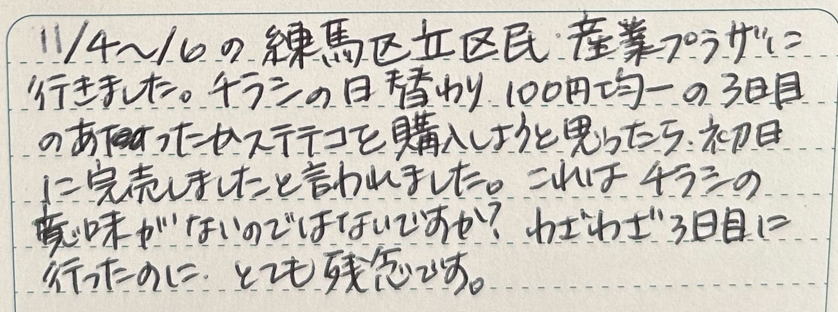 11/4〜/6の練馬区立区民・産業プラザに
行きました。チラシの日替わり100円均一の3日目
のあったかステテコを購入しようと思ったら、初日
に完売しましたと言われました。これはチラシの
意味がないのではないですか？わざわざ3日目に
行ったのに、とても残念です。